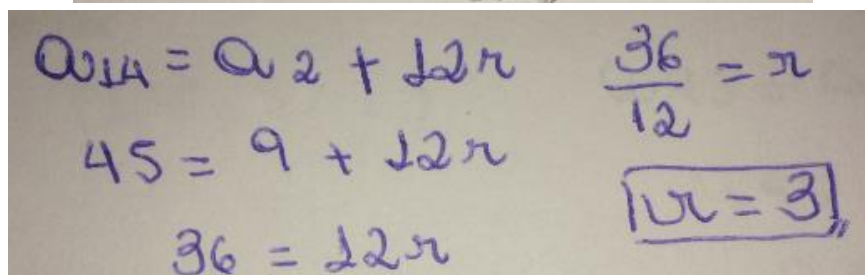 a₁₄ = a₂ + 12r
45 = 9 + 12r
36 = 12r
36/12 = r
r = 3